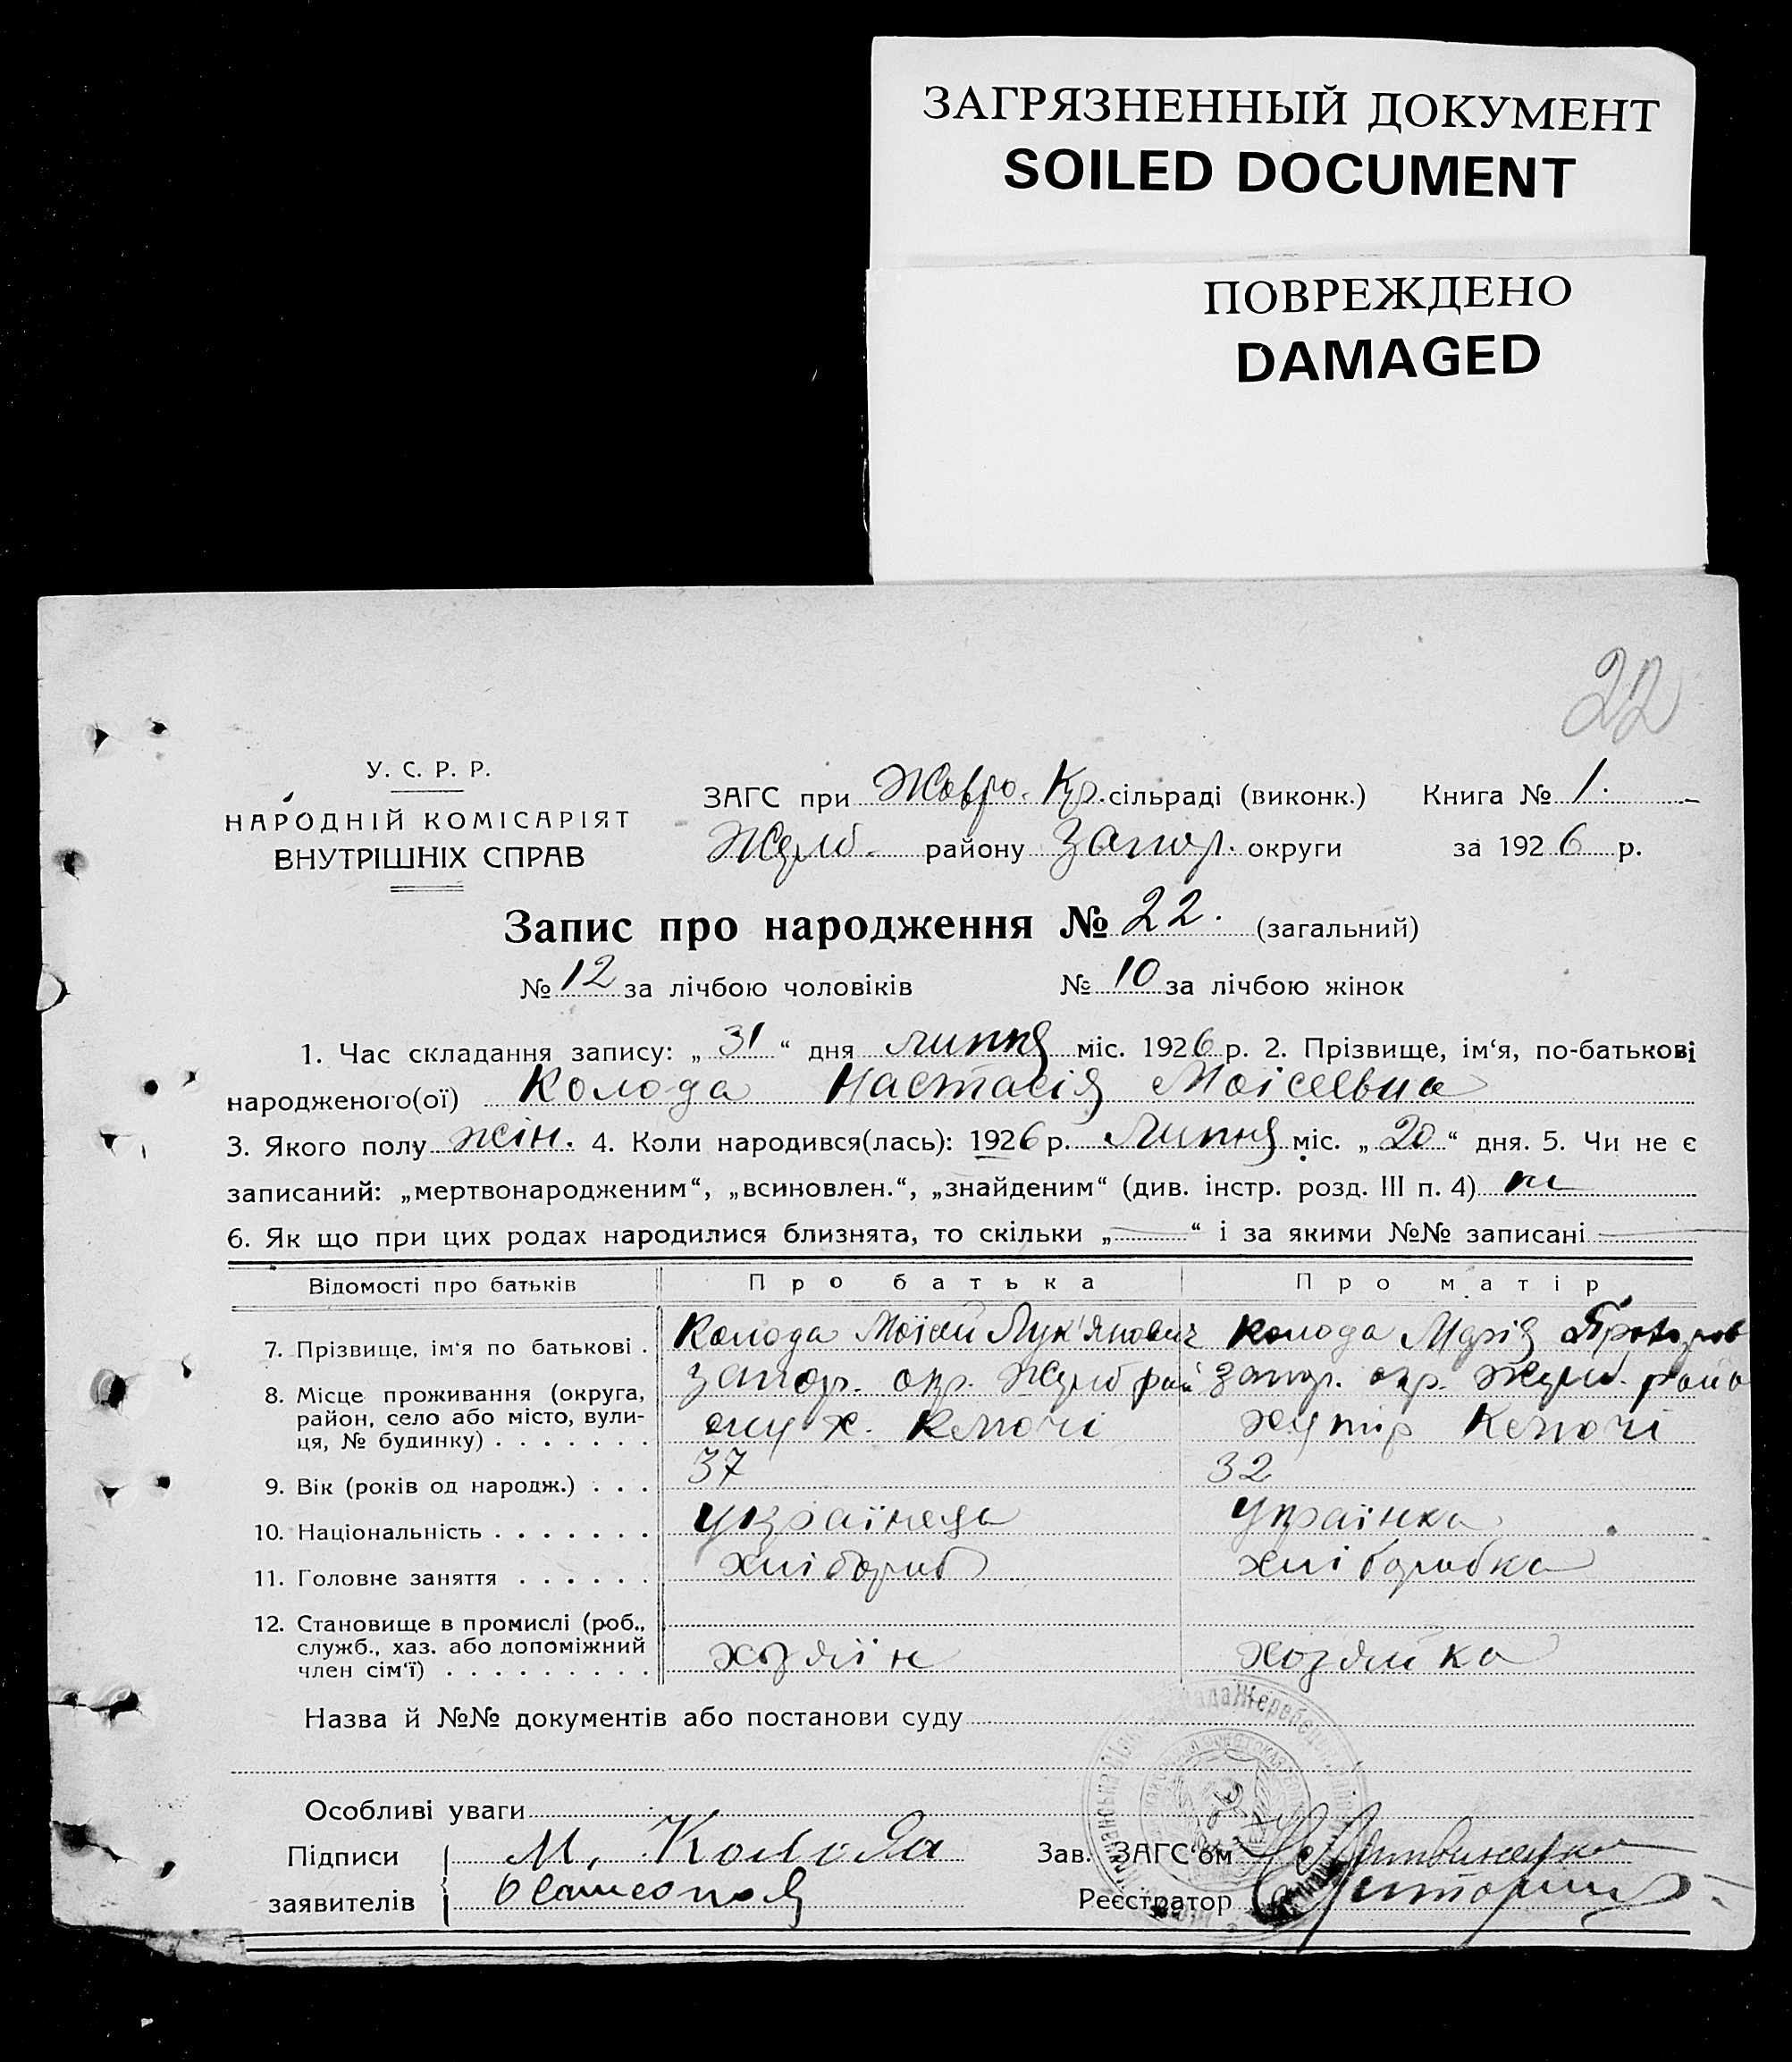 ЗАГРЯЗНЕННЫЙ ДОКУМЕНТ
SOILED DOCUMENT
ПОВРЕЖДЕНО
DAMAGED
22
У. С. Р. Р.
НАРОДНІЙ КОМІСАРІЯТ
ВНУТРІШНІХ СПРАВ
ЗАГС при Жовро. Кр. сільраді (виконк.) Книга № 1.
району Запор. округи за 1926 р.
Запис про народження № 22. (загальний)
№ 12 за лічбою чоловіків № 10 за лічбою жінок
1. Час складання запису: „31“ дня липня міс. 1926 р. 2. Прізвище, ім‘я, по-батькові
народженого(ої) Колода Настасія Моісеевна
3. Якого полу жін. 4. Коли народився(лась): 1926 р. Липня міс. „20“ дня. 5. Чи не є
записаний: „мертвонародженим“, „всиновлен.“, „знайденим“ (див. інстр. розд. III п. 4) ні
6. Як що при цих родах народилися близнята, то скільки „—“ і за якими №№ записані —
Відомості про батьків Про батька Про матір
7. Прізвище, ім‘я по батькові . Колода Моїсей Лук'янович Колода Марія
8. Місце проживання (округа, район, село або місто, вулиця, № будинку) . . . . . . .
Запор. окр. Жереб рай Запор. окр. Жереб. райо
ону х. Ключі хутір Ключі
9. Вік (років од народж.) . . . 37 32
10. Національність . . . . . . . українець українка
11. Головне заняття . . . . . . хлібороб хліборобка
12. Становище в промислі (роб., служб., хаз. або допоміжний член сім‘ї) . . . . . . . . .
хозяїн хозяйка
Назва й №№ документів або постанови суду
Особливі уваги
Підписи М. Колода Зав. ЗАГС‘ом
заявителів Реєстратор